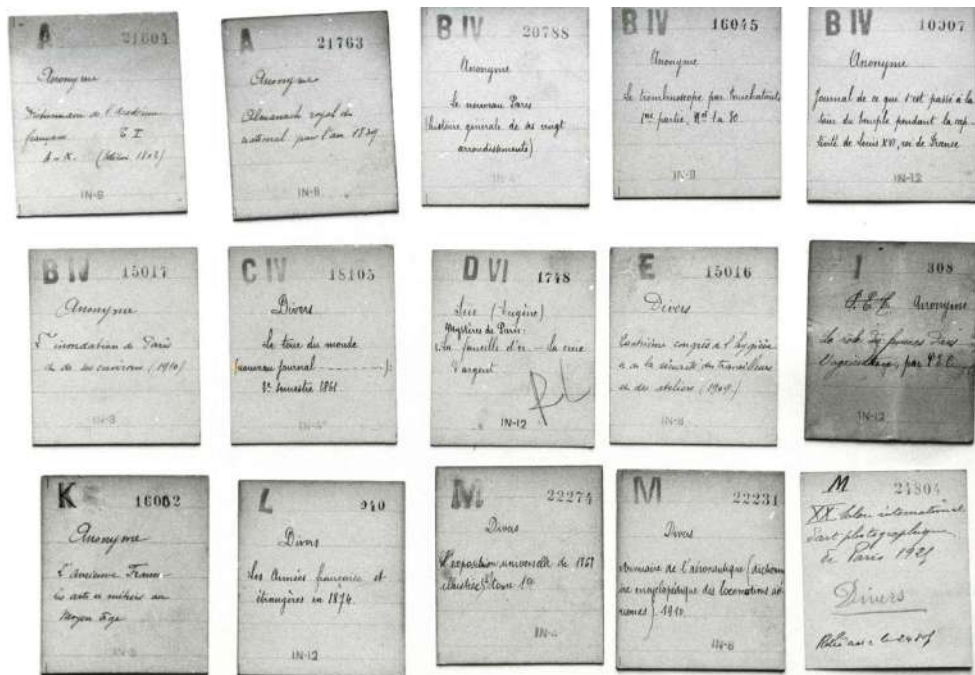 A 21604
Anonyme
Dictionnaire de l'Académie
française T I
A-K.
IN-8
A 21763
Anonyme
Almanach royal et
national pour l'an 1829
IN-8
B IV 20788
Anonyme
Le nouveau Paris
(histoire générale de ses vingt
arrondissements)
IN-4
B IV 16045
Anonyme
Le trombinoscope par Touchatout
1ère partie, Nos 1 à 80
IN-8
B IV 10307
Anonyme
Journal de ce qui s'est passé à la
tour du temple pendant la cap-
tivité de Louis XVI, roi de France
IN-12
B IV 15017
Anonyme
L'inondation de Paris
et de ses environs (1910)
IN-8
C IV 18105
Divers
Le tour du monde
(nouveau journal - - - - - - - ):
1861
IN-4
D VI 1748
Sue (Eugène)
Mystères de Paris:
La
d'argent
IN-12
E 15016
Divers
congrès d'hygiène
et de la sécurité des travailleurs
et des ateliers (1909)
IN-8
I 308
P.E.C. Anonyme
Le rôle
par P.E.C.
IN-12
K 16082
Anonyme
L'ancienne France -
les arts et métiers au
Moyen Âge
IN-8
L 940
Divers
Les Armées française et
étrangères en 1874.
IN-12
M 22274
Divers
L'exposition universelle de 1867
illustrée tome 1er
IN-4
M 22231
Divers
Annuaire de l'aéronautique (dictionna-
ire encyclopédique des locomotions aé-
riennes) 1910.
IN-8
M 24804
XX Salon international
d'art photographique
de Paris 1925
Divers
Relié avec le